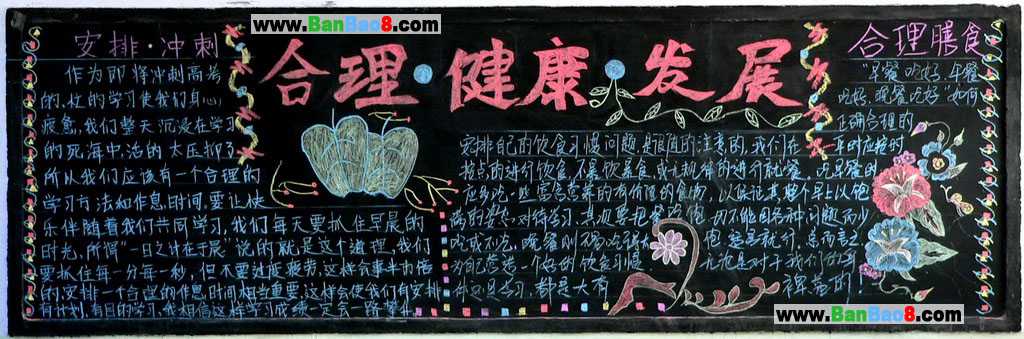 www.BanBao8.com
合理·健康·发展
安排·冲刺
作为即将冲刺高考
的,的学习使我们身心
疲惫,我们整天沉浸在学习
的死海中活的太压抑了
所以我们应该有一个合理的
学习方法和作息时间,要让快
乐伴随着我们共同学习,我们每天要抓住早晨的
时光,所谓“一日之计在于晨”说的就是这个道理,我们
要抓住每一分每一秒,但不要过度疲劳,这样会事半功倍
的,安排一个合理的作息时间相当重要,这样会使我们有安排
有计划,有目的学习,我相信这样学习成绩一定会一路攀升
合理膳食
“早餐吃好,午餐
吃好,晚餐吃好”如何
正确合理的
安排自己的饮食习惯问题是很值的注意的,我们在平时应按时
按点的进行饮食,不暴饮暴食,或无规律的进行就餐。吃早餐时
应多吃一些富含营养的有价值的食物,以保证其整个早上以饱
满的姿态对待学习,其次要把餐吃饱,切不能因各种问题而少
吃或不吃,晚餐则不易吃得饱,总而言之
为自己营造一个好的饮食习惯,尤为是对于我们的身
体还是学习,都是大有裨益的!
www.BanBao8.com